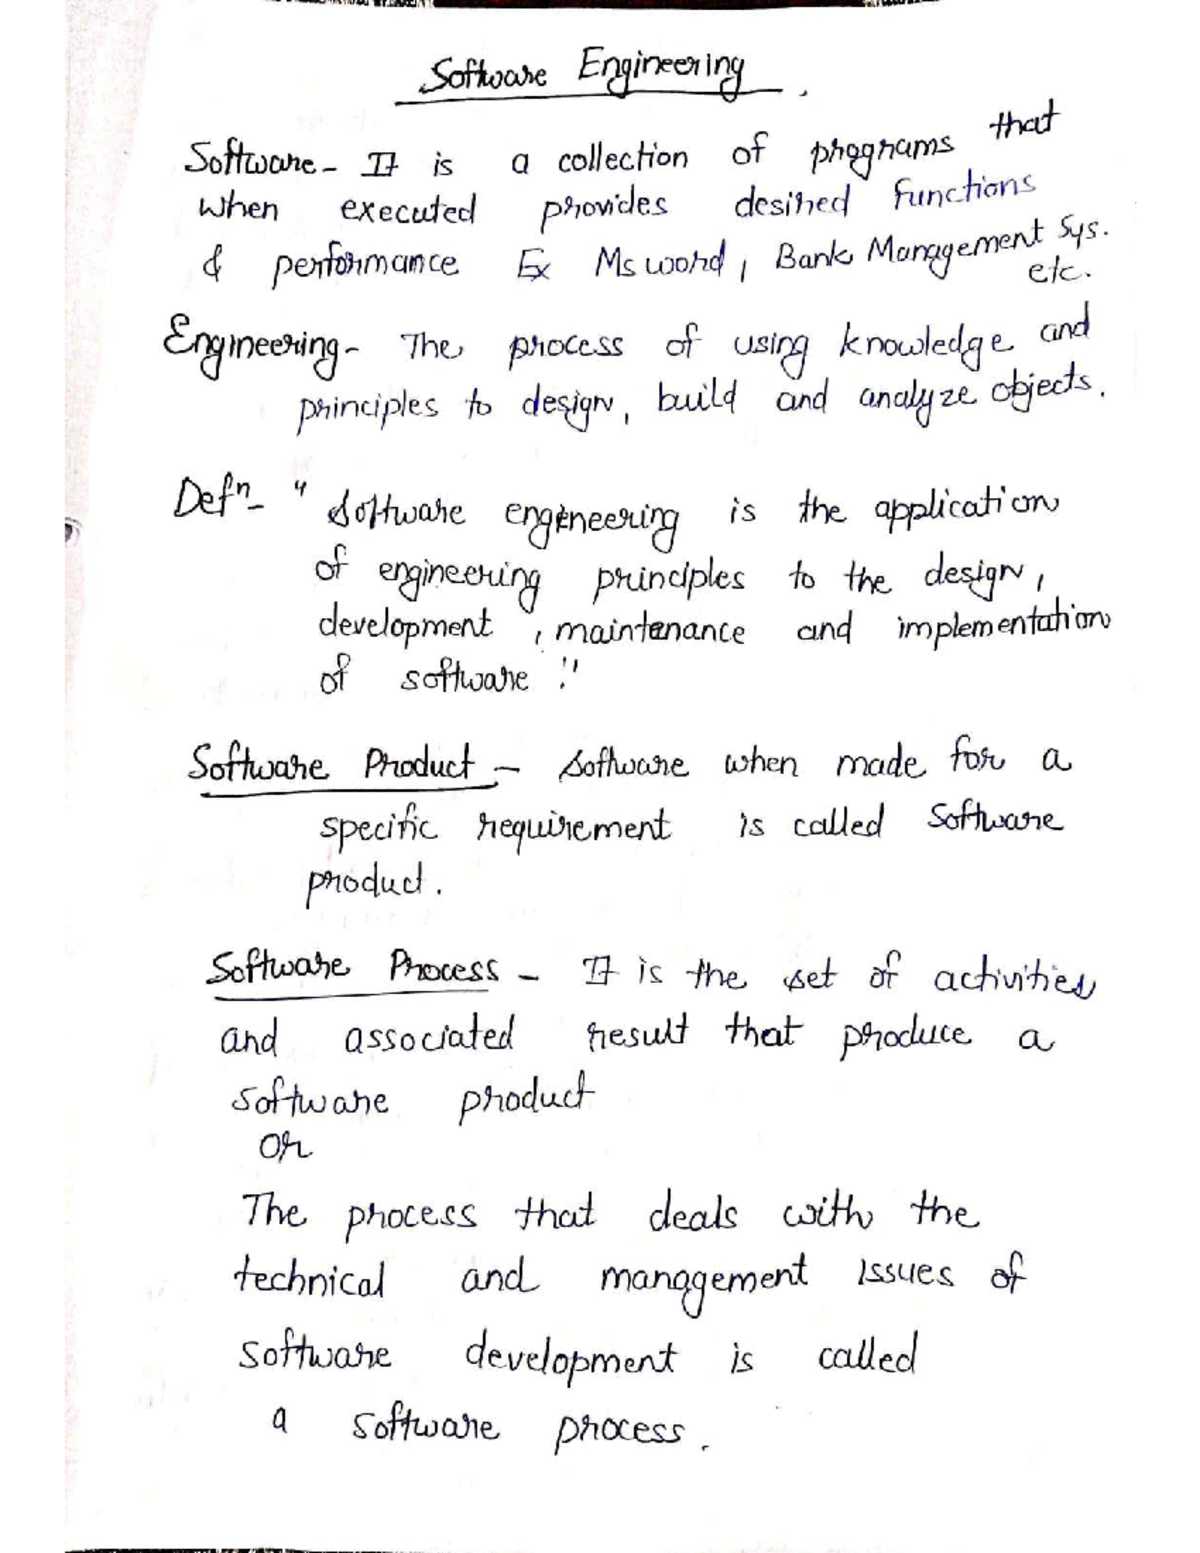 Software Engineering.
Software - It is a collection of programs that
when executed provides desired functions
& performance Ex Ms word, Bank Management Sys.
etc.
Engineering - The process of using knowledge and
principles to design, build and analyze objects.
Defⁿ - " Software engineering is the application
of engineering principles to the design,
development, maintenance and implementation
of software."
Software Product - Software when made for a
specific requirement is called Software
product.
Software Process - It is the set of activities
and associated result that produce a
software product
or
The process that deals with the
technical and management issues of
software development is called
a software process.